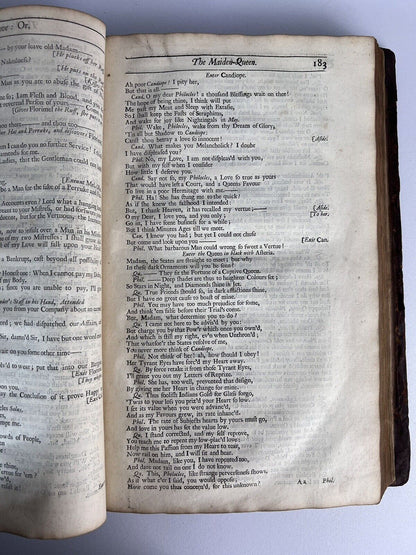 or: Or,
by your leave old Madam
He Ruffs off her
Nakedness?
He puts on the
Man as you are to abuse the
Age of
so; I am Flesh and Blood, and
reverend Portion of yours
Exit Florimel
thus and thus and thus
her Hat and Perruke, and discovers
could do you no further Service!
Ladies, that the Gentleman could
Exeunt
be a Man for the sake of a Perruke and
Accounts stand? Lord what a Hanger
your Mistress, or had devoured
peace, but for the Vertuous, the
now to insult over a Man in his
of this Mortal World: I shall
of my Love will fall upon
a Bankrupt, cast beyond all possible
Honest when I cannot pay my
my Body.
under's Staff in his Hand, Attended
from your Company about so
we; we had dispatched our Affairs,
Sir, damn'd Sir, I have but one
now some of them
to wear; put that into our
Exit Flor.
They
Conclusion of it prove Happy.
Philocles Solus.
crowds of People,
The Maiden-Queen. 183
Enter Candiope.
Ah poor Candiope! I pity her,
But that is all.
Cand. O my dear Philocles! a thousand Blessings wait on thee!
The hope of being thine, I think will put
Me past my Meat and Sleep with Extasie,
So I shall keep the Fasts of Seraphims,
And wake for joy like Nightingals in May.
Phil. Wake, Philocles, wake from thy Dream of Glory,
'Tis all but Shadow to Candiope:
Canst thou betray a love so innocent! [Aside.
Cand. What makes you Melancholick? I doubt
I have displeased you?
Phil. No, my Love, I am not displeas'd with you,
But with my self when I consider
How little I deserve you.
Cand. Say not so, my Philocles, a Love so true as yours
That would have left a Court, and a Queens Favour
To live in a poor Hermitage with me—
Phil. Ha! She has stung me to the quick!
As if she knew the falshood I intended:
But, I thank Heaven, it has recalled my vertue;— [Aside.
O my Dear, I love you, and you only; [To her,
Go in, I have some business for a while;
But I think Minutes Ages till we meet.
Cand. I knew you had; but yet I could not chuse
But come and look upon you— [Exit Can.
Phil. What barbarous Man could wrong so sweet a Vertue!
Enter the Queen in black with Asteria.
Madam, the States are straight to meet; but why
In these dark Ornaments will you be seen?
Qu. They fit the Fortune of a Captive Queen.
Phil. Deep shades are thus to heighten Colours set;
So Stars in Night, and Diamonds shine in Jet.
Qu. True Friends should so, in dark afflictions shine,
But I have no great cause to boast of mine.
Phil. You may have too much prejudice for some,
And think 'em false before their Trial's come.
But, Madam, what determine you to do?
Qu. I come not here to be advis'd by you:
But charge you by that Pow'r which once you own'd,
And which is still my right, ev'n when Unthron'd;
That whatsoe'r the States resolve of me,
You never more think of Candiope.
Phil. Not think of her! ah, how should I obey!
Her Tyrant Eyes have forc'd my Heart away.
Qu. By force retake it from those Tyrant Eyes,
I'll grant you out my Letters of Reprize.
Phil. She has, too well, prevented that design,
By giving me her Heart in change for mine.
Qu. Thus foolish Indians Gold for Glass forgo,
'Twas to your loss you priz'd your Heart so low.
I set its value when you were advanc'd,
And as my Favours grew, its rate inhanc'd.
Phil. The rate of Subjects hearts by yours must go,
And love in yours has set the value low.
Qu. I stand corrected, and my self reprove,
You teach me to repent my low-plac'd love:
Help me this Passion from my Heart to tear,
Now rail on him, and I will sit and hear.
Phil. Madam, like you, I have repented too,
And dare not rail on one I do not know.
Qu. This, Philocles, like strange perverseness shows,
As if what e'er I said, you would oppose;
How come you thus concern'd, for this unknown?
A a Phil.